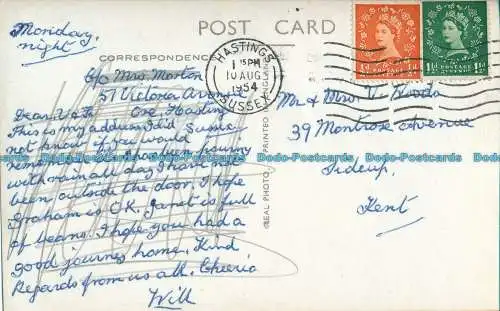 Monday
night
POST CARD
CORRESPONDENCE
HASTINGS
1 15 PM
10 AUG
1954
SUSSEX
POSTAGE REVENUE
½d
1½d
c/o Mrs. Morton
57 Victoria Avenue
Ore, Hastings
Sussex
Dear V & F.
This is my address I did
not know if you would
been pouring
with rain all day I have
been outside the door. I hope
Graham is O.K. Janet is full
of beans. I hope you had a
good journey home. Kind
Regards from us all. Cheerio
Will
REAL PHOTO
PRINTED
Mr & Mrs. V. Flooda
39 Montrose Avenue
Sidcup,
Kent
Dodo-Postcards Dodo-Postcards Dodo-Postcards Dodo-Postcards